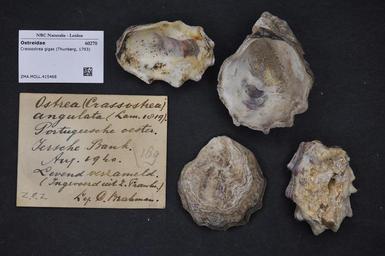 NBC Naturalis - Leiden
Ostreidae 60270
Crassostrea gigas (Thunberg, 1793)
ZMA.MOLL.415468
Ostrea (Crassostrea)
angulata (Lam. 1819).
Portugeesche oester.
Iersche Bank.
Aug. 1940.
169
Levend verzameld.
(Ingevoerd uit Z. Frankr.)
Z.Z.Z Leg.